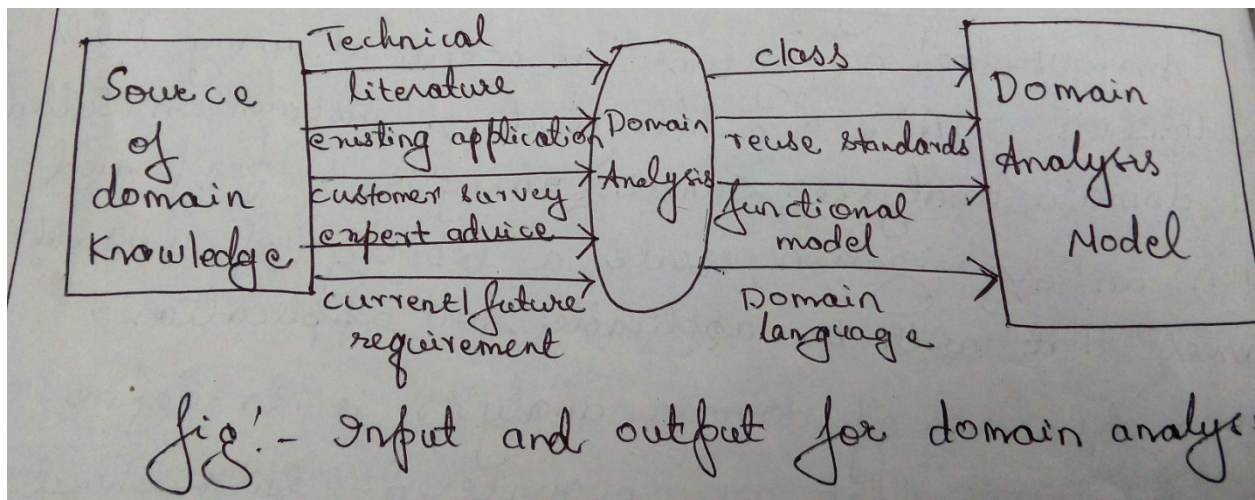 Source
of
domain
Knowledge
Technical
literature
existing application
customer survey
expert advice
current/future
requirement
Domain
Analysis
class
reuse standards
functional
model
Domain
language
Domain
Analysis
Model
fig:- Input and output for domain analys